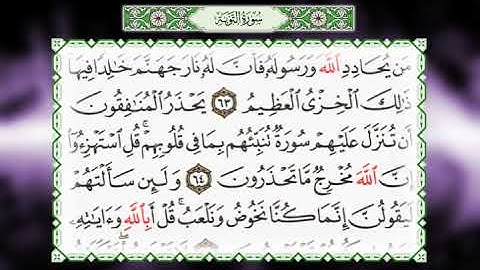 سُورَةُ التَّوْبَةِ
مَن يُحَادِدِ ٱللَّهَ وَرَسُولَهُۥ فَأَنَّ لَهُۥ نَارَ جَهَنَّمَ خَٰلِدًا فِيهَا
ذَٰلِكَ ٱلْخِزْىُ ٱلْعَظِيمُ ٦٣ يَحْذَرُ ٱلْمُنَٰفِقُونَ
أَن تُنَزَّلَ عَلَيْهِمْ سُورَةٌ تُنَبِّئُهُم بِمَا فِى قُلُوبِهِمْ ۚ قُلِ ٱسْتَهْزِءُوٓا۟
إِنَّ ٱللَّهَ مُخْرِجٌ مَّا تَحْذَرُونَ ٦٤ وَلَئِن سَأَلْتَهُمْ
لَيَقُولُنَّ إِنَّمَا كُنَّا نَخُوضُ وَنَلْعَبُ ۚ قُلْ أَبِٱللَّهِ وَءَايَٰتِهِۦ